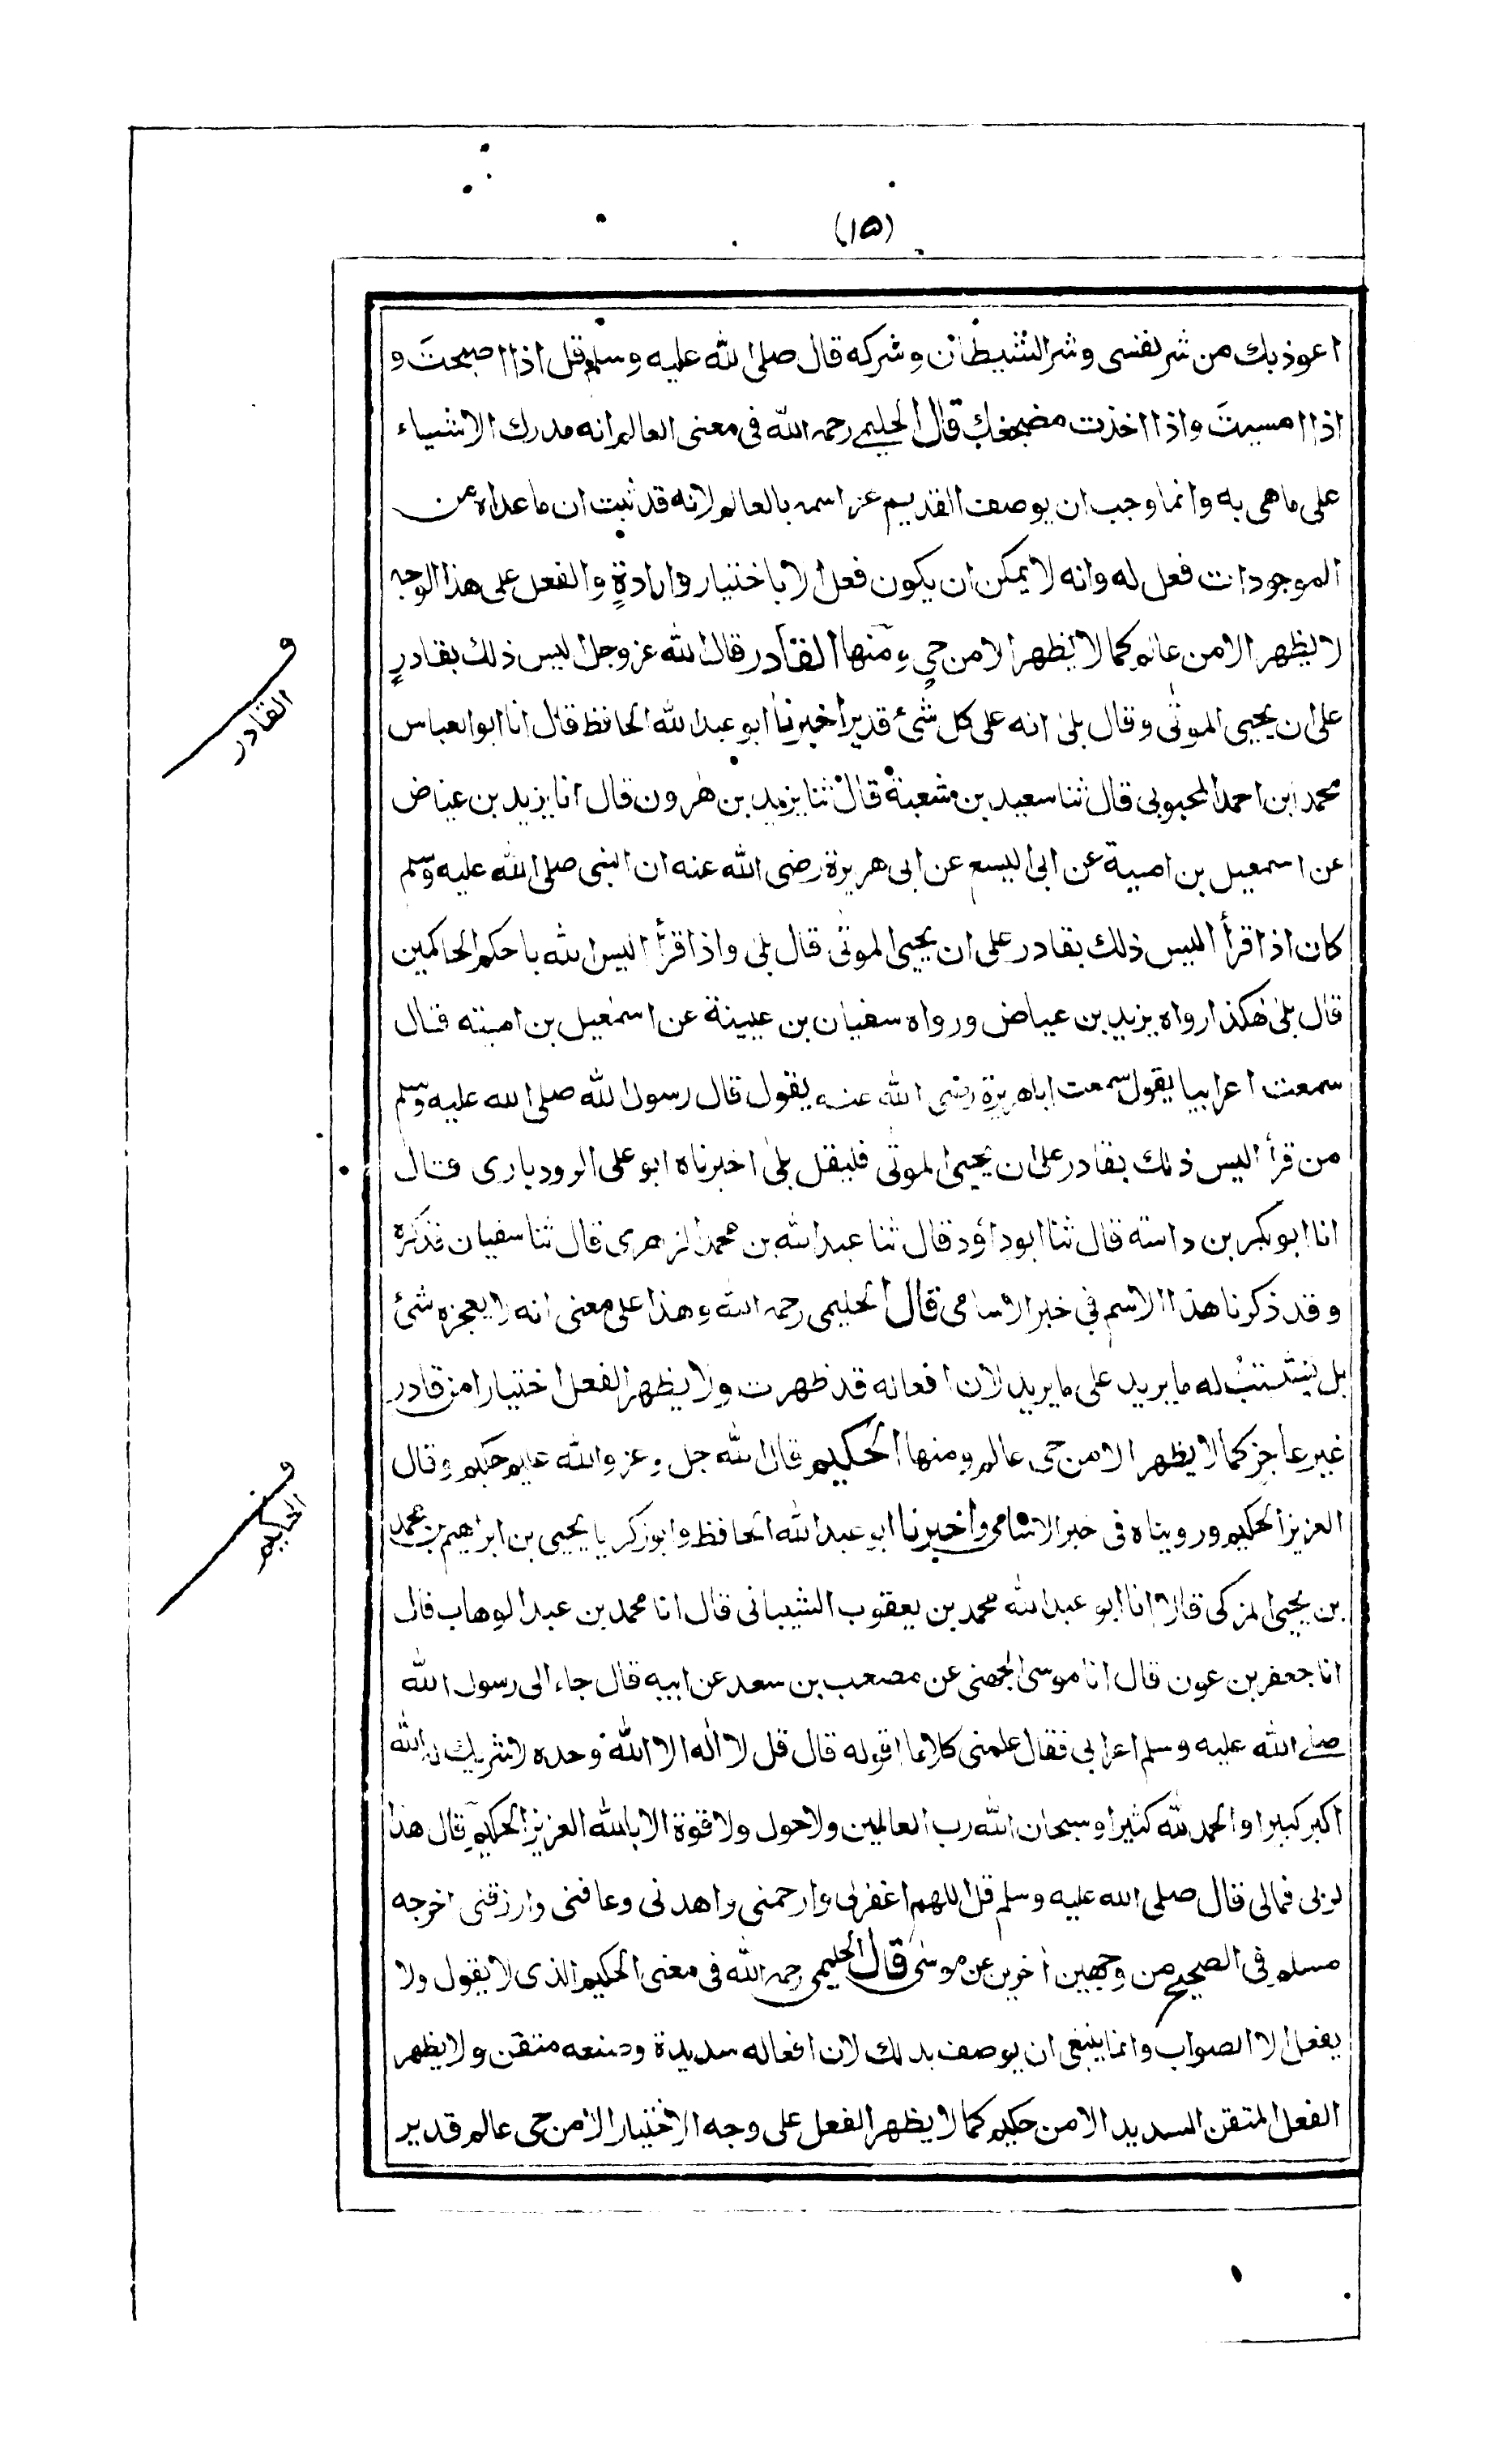 (١٥)
اعوذ بك من شر نفسى وشر الشيطان وشركه قال صلى الله عليه وسلم قل اذا اصبحتَ و
اذا امسيتَ واذا اخذت مضجعك قال الحليمي رحمه الله فى معنى العالم انه مدرك الاشياء
على ماهى به وانما وجب ان يوصف القديم عز اسمه بالعالم لانه قد ثبت ان ما عداه من
الموجودات فعل له وانه لا يمكن ان يكون فعل الا باختيار وارادةٍ والفعل على هذا الوجه
لا يظهر الا من عالم كما لا يظهر الا من حيٍ ومنها القادر قال الله عز وجل اليس ذلك بقادرٍ
على ان يحيى الموتى وقال بلى انه على كل شئ قدير اخبرنا ابو عبد الله الحافظ قال انا ابو العباس
محمد ابن احمد المحبوبى قال ثنا سعيد بن مسعود قال ثنا يزيد بن هرون قال انا يزيد بن عياض
عن اسمعيل بن امية عن ابى اليسع عن ابى هريرة رضى الله عنه ان النبى صلى الله عليه وسلم
كان اذا قرأ اليس ذلك بقادر على ان يحيى الموتى قال بلى واذا قرأ اليس الله باحكم الحاكمين
قال بلى هكذا رواه يزيد بن عياض ورواه سفيان بن عيينة عن اسمعيل بن امية قال
سمعت اعرابيا يقول سمعت اباهريرة رضى الله عنه يقول قال رسول الله صلى الله عليه وسلم
من قرأ اليس ذلك بقادر على ان يحيى الموتى فليقل بلى اخبرناه ابو على الروذبارى قال
انا ابو بكر بن داسة قال ثنا ابو داؤد قال ثنا عبد الله بن محمد الزهرى قال ثنا سفيان فذكره
وقد ذكرنا هذا الاسم فى خبر الاسامى قال الحليمى رحمه الله وهذا على معنى انه لا يعجزه شئ
بل يستتب له ما يريد على ما يريد لان افعاله قد ظهرت ولا يظهر الفعل اختيارا من قادر
غير عاجز كما لا يظهر الا من حى عالم ومنها الحكيم قال الله جل وعز والله عليم حكيم وقال
العزيز الحكيم ورويناه فى خبر الاسامى واخبرنا ابو عبد الله الحافظ وابو زكريا يحيى بن ابراهيم بن محمد
بن يحيى المزكى قالا انا ابو عبد الله محمد بن يعقوب الشيبانى قال انا محمد بن عبد الوهاب قال
انا جعفر بن عون قال انا موسى الجهنى عن مصعب بن سعد عن ابيه قال جاء الى رسول الله
صلى الله عليه وسلم اعرابى فقال علمنى كلاما اقوله قال قل لا اله الا الله وحده لا شريك له الله
اكبر كبيرا والحمد لله كثيرا وسبحان الله رب العالمين ولا حول ولا قوة الا بالله العزيز الحكيم قال هذا
لربى فمالى قال صلى الله عليه وسلم قل اللهم اغفرلى وارحمنى واهدنى وعافنى وارزقنى اخرجه
مسلم فى الصحيح من وجهين اخرين عن موسى قال الحليمى رحمه الله فى معنى الحكيم الذى لا يقول ولا
يفعل الا الصواب وانما ينبغى ان يوصف بذلك لان افعاله سديدة وصنعه متقن ولا يظهر
الفعل المتقن السديد الا من حكيم كما لا يظهر الفعل على وجه الاختيار الا من حى عالم قدير
القادر
الحكيم